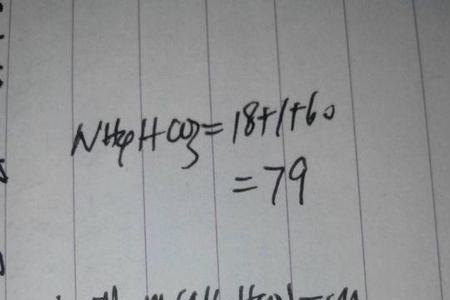 NH4HCO3=18+1+60
=79